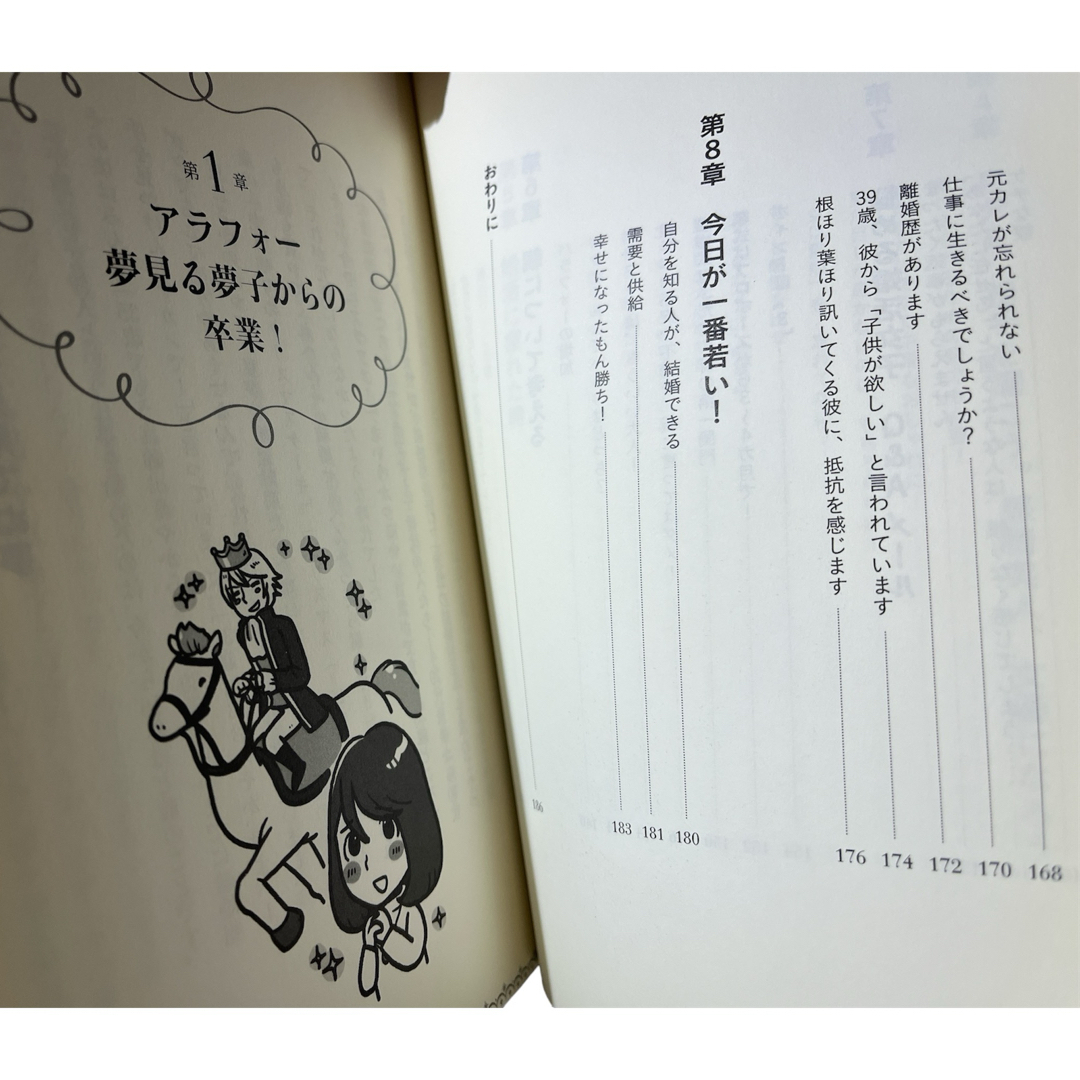 元カレが忘れられない 168
仕事に生きるべきでしょうか? 170
離婚歴があります 172
39歳、彼から「子供が欲しい」と言われています 174
根ほり葉ほり訊いてくる彼に、抵抗を感じます 176
第8章 今日が一番若い!
自分を知る人が、結婚できる 180
需要と供給 181
幸せになったもん勝ち! 183
おわりに 186
第1章
アラフォー
夢見る夢子からの
卒業!